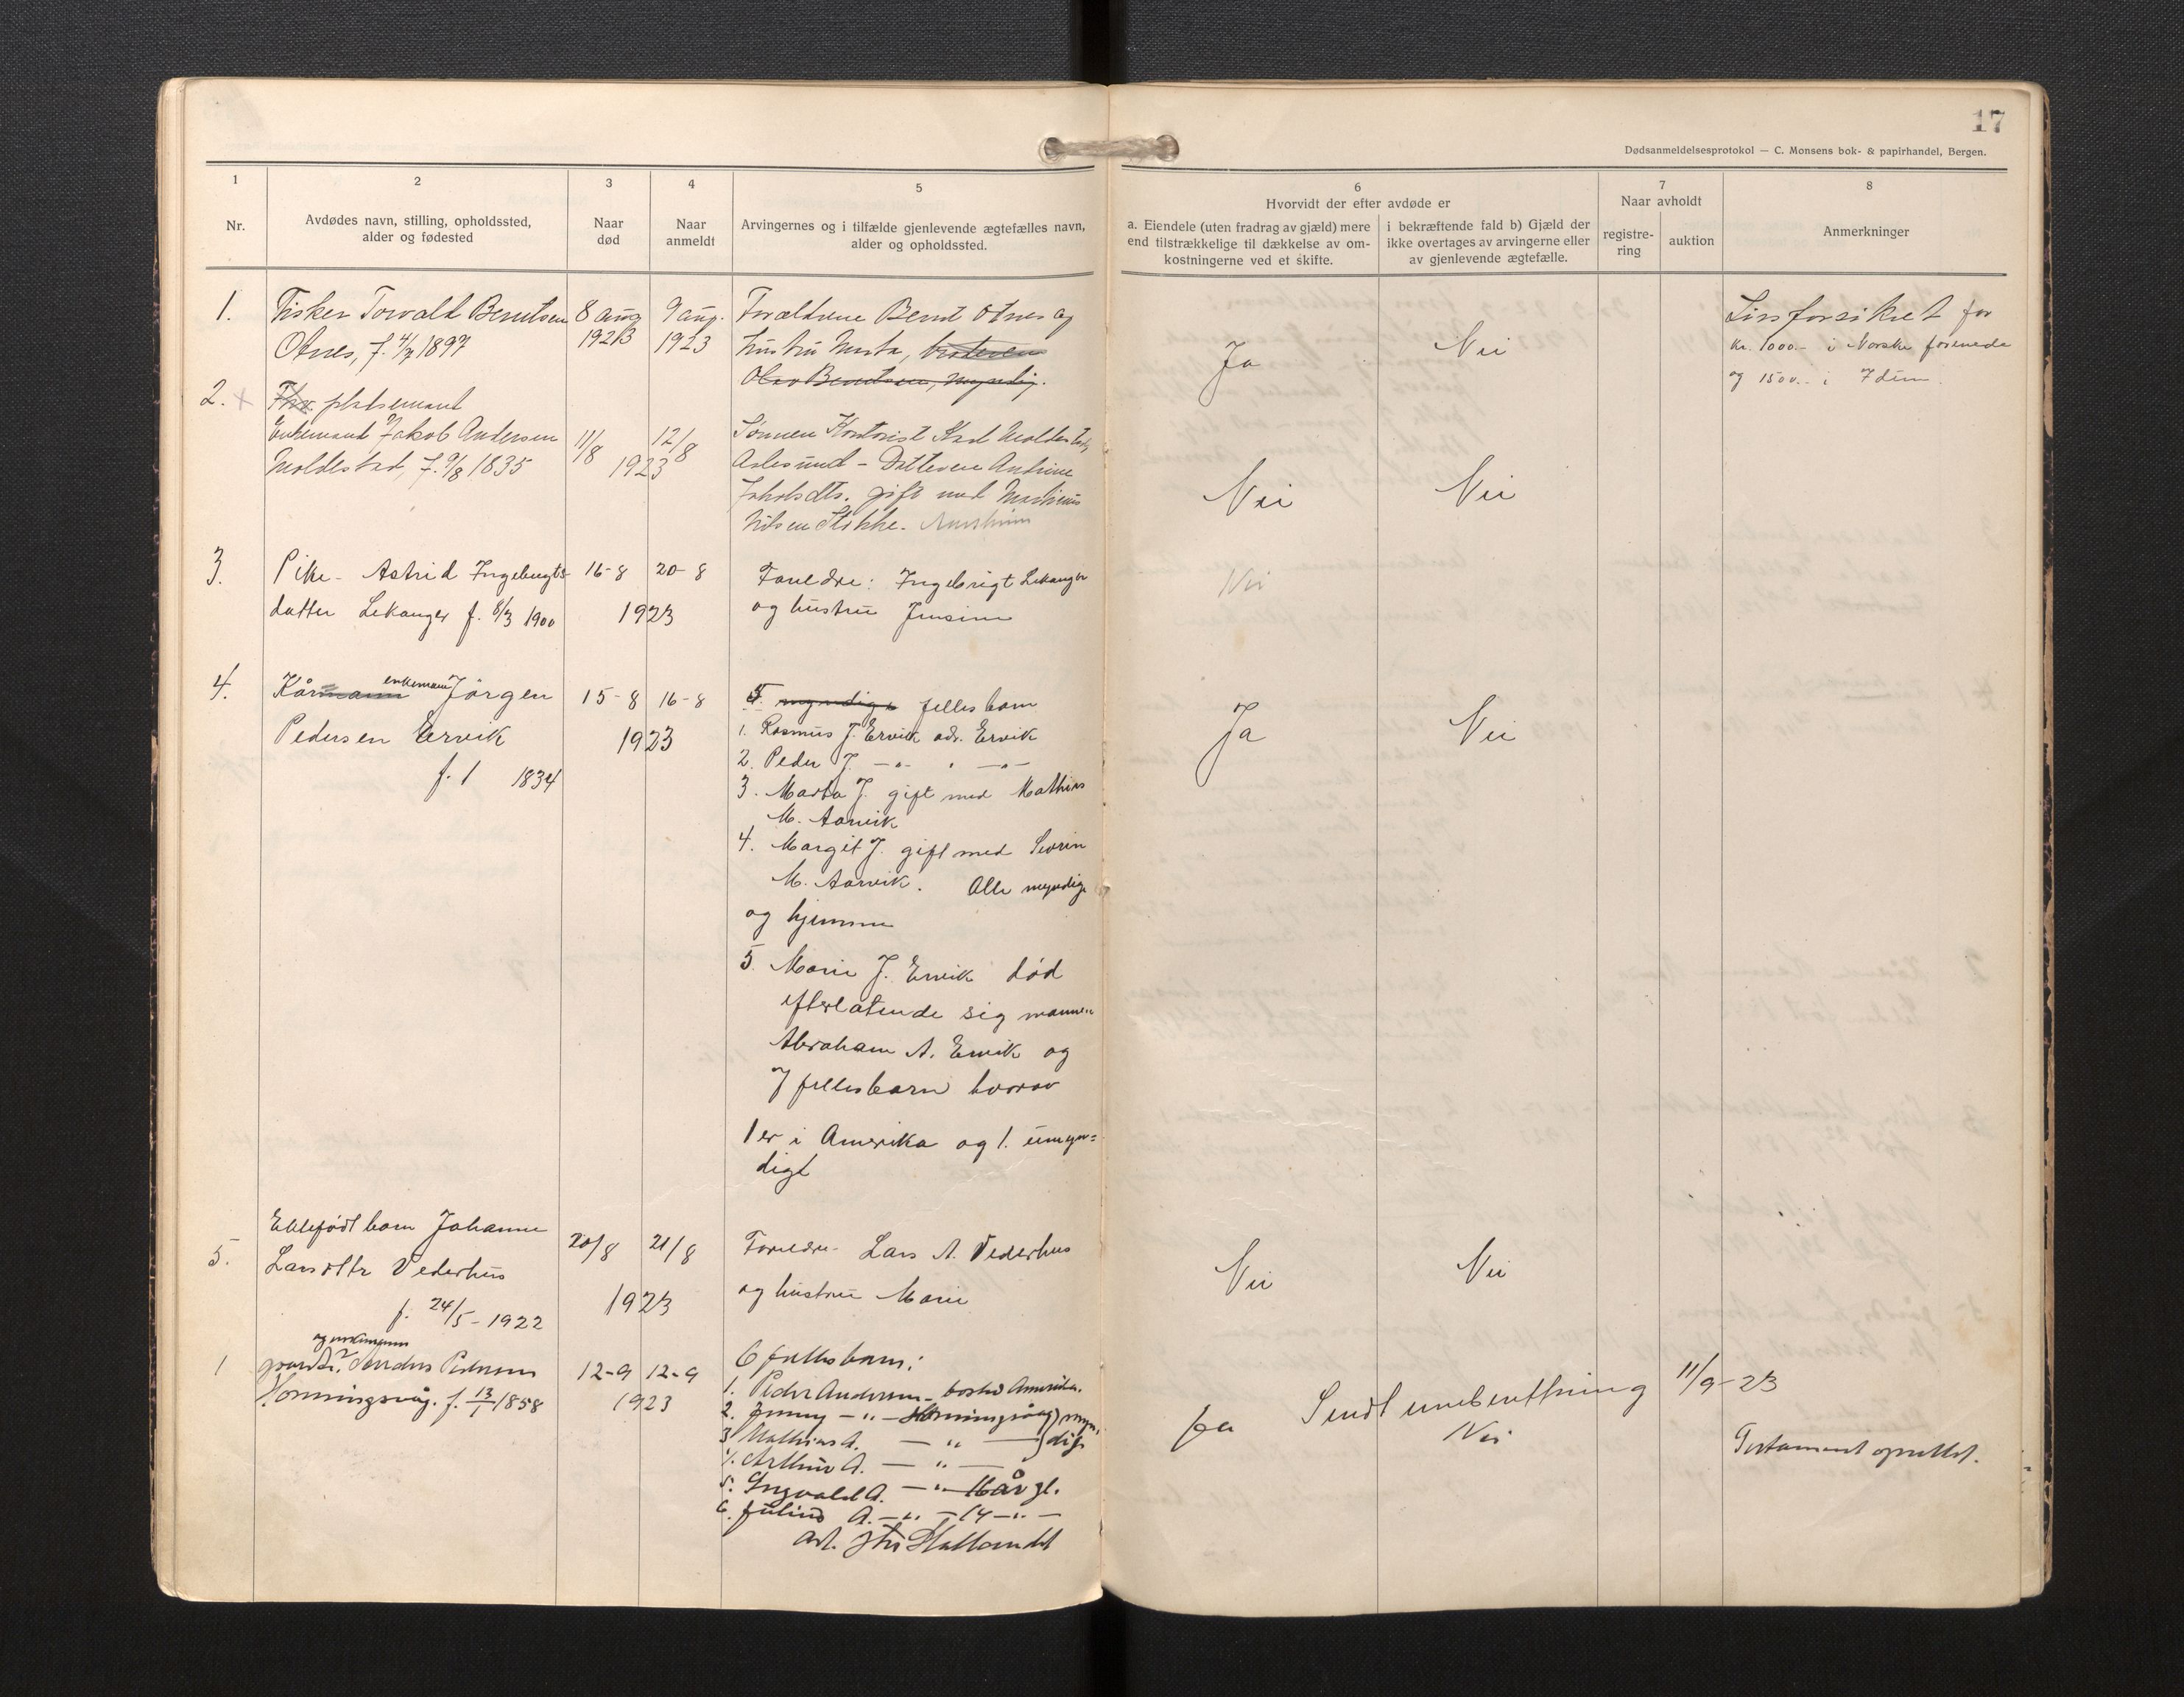 17
Dødsanmeldelsesprotokol — C. Monsens bok- & papirhandel, Bergen.
1
2
3
4
5
6
7
8
Nr.
Avdødes navn, stilling, opholdssted,
alder og fødested
Naar
død
Naar
anmeldt
Arvingernes og i tilfælde gjenlevende ægtefælles navn,
alder og opholdssted.
Hvorvidt der efter avdøde er
a. Eiendele (uten fradrag av gjæld) mere
end tilstrækkelige til dækkelse av om-
kostningerne ved et skifte.
i bekræftende fald b) Gjæld der
ikke overtages av arvingerne eller
av gjenlevende ægtefælle.
Naar avholdt
registre-
ring
auktion
Anmerkninger
1.
Fisker Torvald Berntsen
Otnes, f. 4/7 1897
8 aug
1923
9 aug.
1923
Forældrene Bernt Otnes og
hustru Marta, broderen
Olav Berntsen, myndig.
Ja
Nei
Livsforsikret for
kr. 1000.- i Norske forenede
og 1500.- i
2.
plassmand
Enkemand Jakob Andersen
Moldestad, f. 9/8 1835
11/8
12/8
1923
Sønnen Kontorist
Aalesund - Datteren
Jakobsdtr. gift med Martinus
Nilsen
Nei
Nei
3.
Pike - Astrid Ingebrigts-
datter Lekanger f. 8/3 1900
16-8
20-8
1923
Foreldre: Ingebrigt Lekanger
og hustru Jensine
Nei
4.
Kårmann enkemann Jörgen
Pedersen Ervik
f. 1 1834
15-8
16-8
1923
5 myndige felles barn
1. Rasmus J. Ervik adr. Ervik
2. Peder J. —"— " —"—
3. Marta J. gift med Mathias
M. Aarvik
4. Margit J. gift med Sevrin
M. Aarvik. Alle myndige
og hjemme
5. Marie J. Ervik död
efterlatende sig mannen
Abraham A. Ervik og
7 fellesbarn hvorav
1 er i Amerika og 1. umyn=
digt
Ja
Nei
5.
Ektefödt barn Johanne
Larsdtr Vederhus
f. 24/5 - 1922
20/8
21/8
1923
Foreldre - Lars A. Vederhus
og hustru Marie
Nei
Nei
1
og enkemann
gaardbr. Anders Pedersen
Honningsvåg. f. 13/1 1858
12-9
12-9
1923
6 fellesbarn:
1. Peder Andersen - bosted Amerika.
2. Jenny —"— Honningsvåg) myn-
3 Mathias A. —"— dige
4. Arthur A. —"—
5. Ingvald A. —"— 16 år gl.
6. Julius A. —"— 14 —"—
Ja
Sendt innberettning 11/9-23
Nei
Testament oprettet.